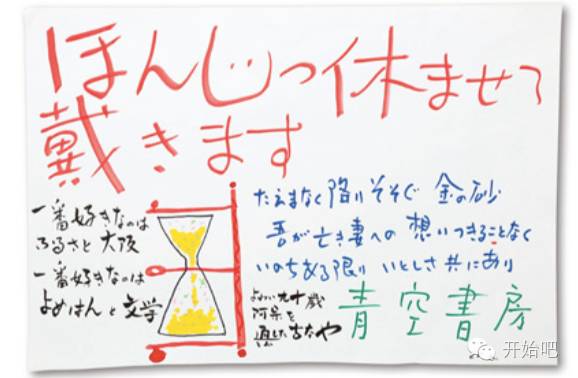 ほんじつ休ませて
戴きます
一番好きなのは
ふるさと大阪
一番好きなのは
よめはんと文学
たえまなく降りそそぐ 金の砂
吾が亡き妻への 想いつきることなく
いのちある限り いとしさ共にあり
よわい九十歳
阿呆を
通した
青空書房
开始吧